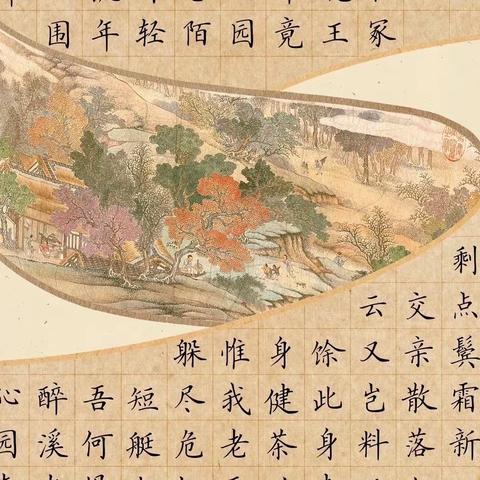 剩点鬓霜新
交亲散落
冢
云又岂料
王
馀此身
竟
身健茶
园
惟我老
陌
躲尽危
轻
短艇
年
吾何
围
醉溪
沁园